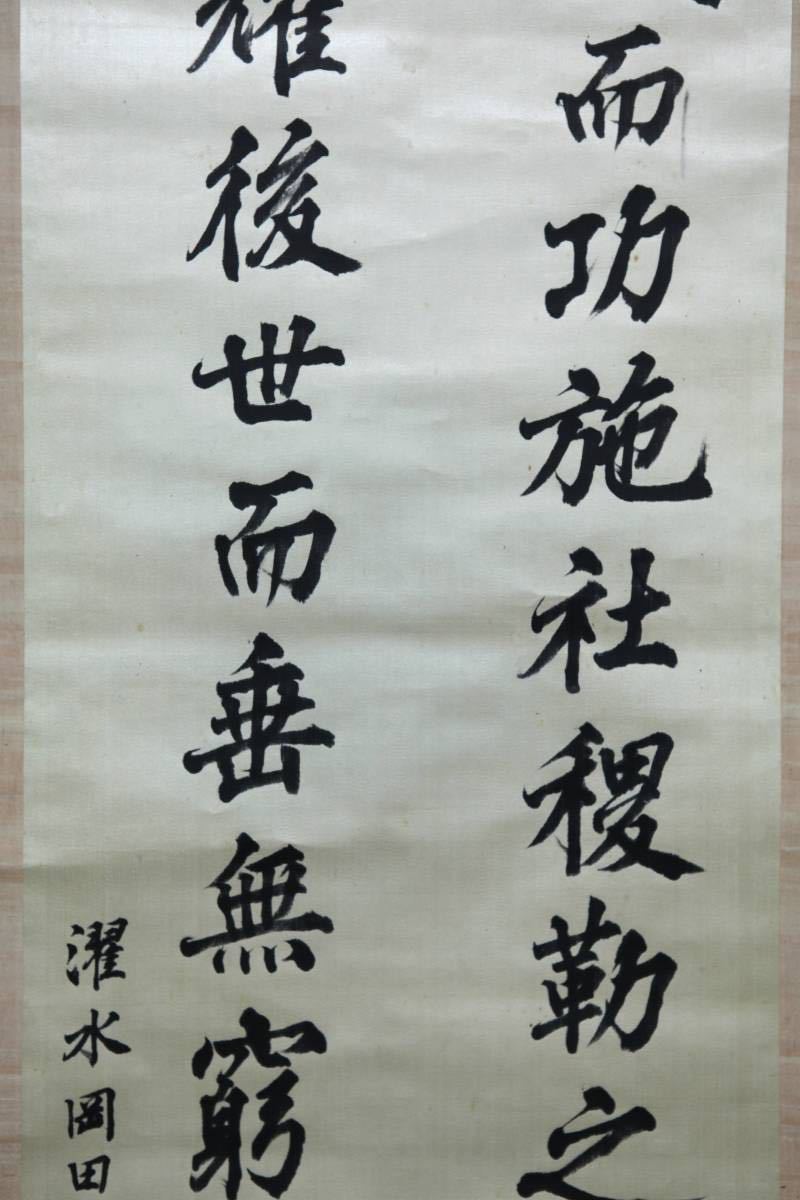 而功施社稷勒之
耀後世而垂無窮
濯水岡田